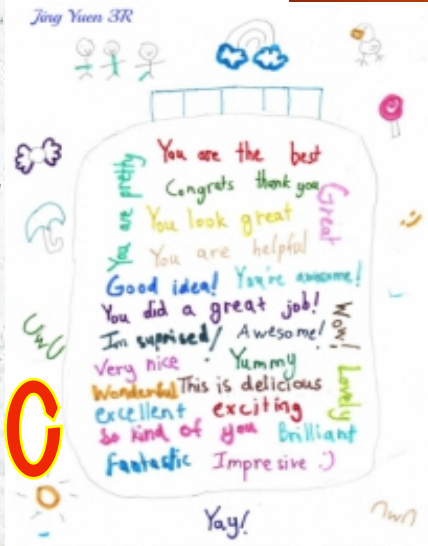 Jing Yuen 3R
You are the best
You are pretty
Congrats thank you
Great
You look great
You are helpful
Good idea! You're awesome!
You did a great job!
Wow!
Im suprised! Awesome!
UwU
Very nice Yummy
Lovely
Wonderful This is delicious
excellent exciting
So kind of you Brilliant
fantastic Impresive :)
C
Yay!
nwn